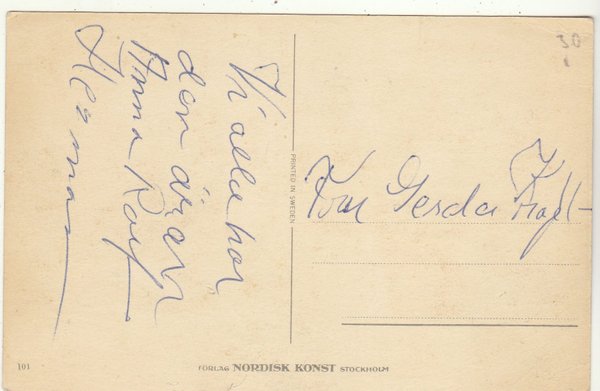 Vi alla har
den äran
Anna Rolf
Herman
Fru Gerda
PRINTED IN SWEDEN
30
101
FÖRLAG NORDISK KONST STOCKHOLM